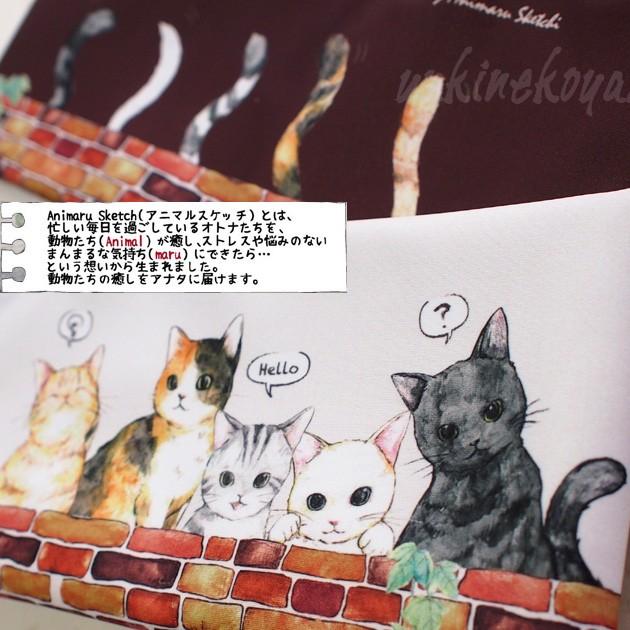 Animaru Sketch
Animaru Sketch(アニマルスケッチ) とは、
忙しい毎日を過ごしているオトナたちを、
動物たち(Animal) が癒し、ストレスや悩みのない
まんまるな気持ち(maru) にできたら…
という想いから生まれました。
動物たちの癒しをアナタに届けます。
?
Hello